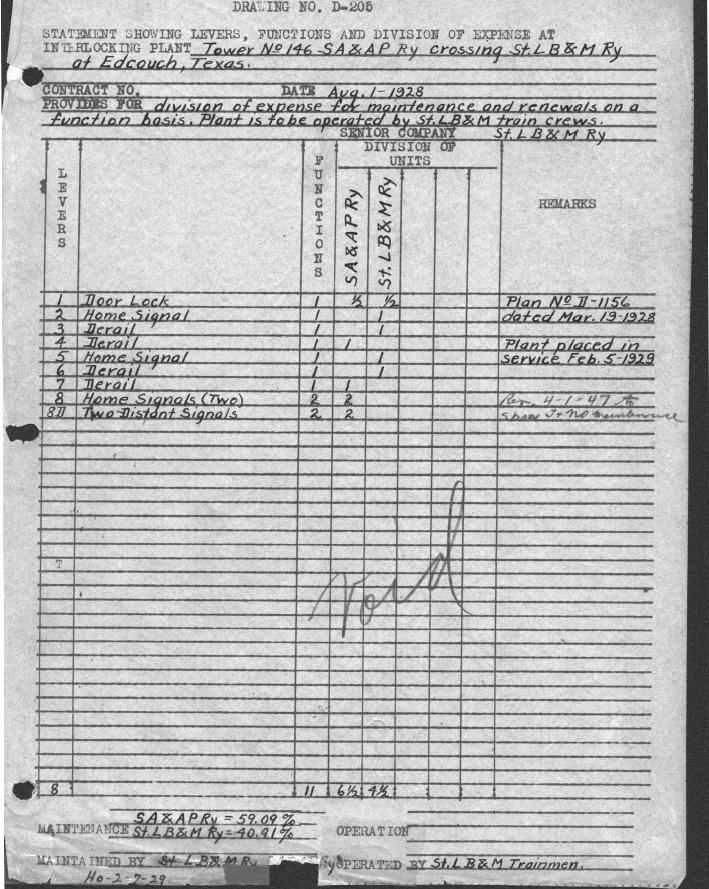 DRAWING NO. D-205
STATEMENT SHOWING LEVERS, FUNCTIONS AND DIVISION OF EXPENSE AT
INTERLOCKING PLANT Tower No 146 SA&AP Ry crossing St.LB&M Ry
at Edcouch, Texas.
CONTRACT NO. DATE Aug. 1-1928
PROVIDES FOR division of expense for maintenance and renewals on a
function basis. Plant is to be operated by St.LB&M train crews.
SENIOR COMPANY St.LB&M Ry
LEVERS FUNCTIONS DIVISION OF UNITS REMARKS
SA&AP Ry St.LB&M Ry
1 Door Lock 1 ½ ½ Plan No D-1156
2 Home Signal 1 1 dated Mar. 19-1928
3 Derail 1 1
4 Derail 1 1 Plant placed in
5 Home Signal 1 1 service Feb. 5-1929
6 Derail 1 1
7 Derail 1 1
8 Home Signals (Two) 2 2 Rev. 4-1-47 to
8D Two Distant Signals 2 2 show T+NO
T
Void
8 11 6½ 4½
SA&AP Ry = 59.09%
MAINTENANCE St.LB&M Ry = 40.91% OPERATION
MAINTAINED BY St LB&M Ry Sys OPERATED BY St.LB&M Trainmen.
Ho-2-7-29